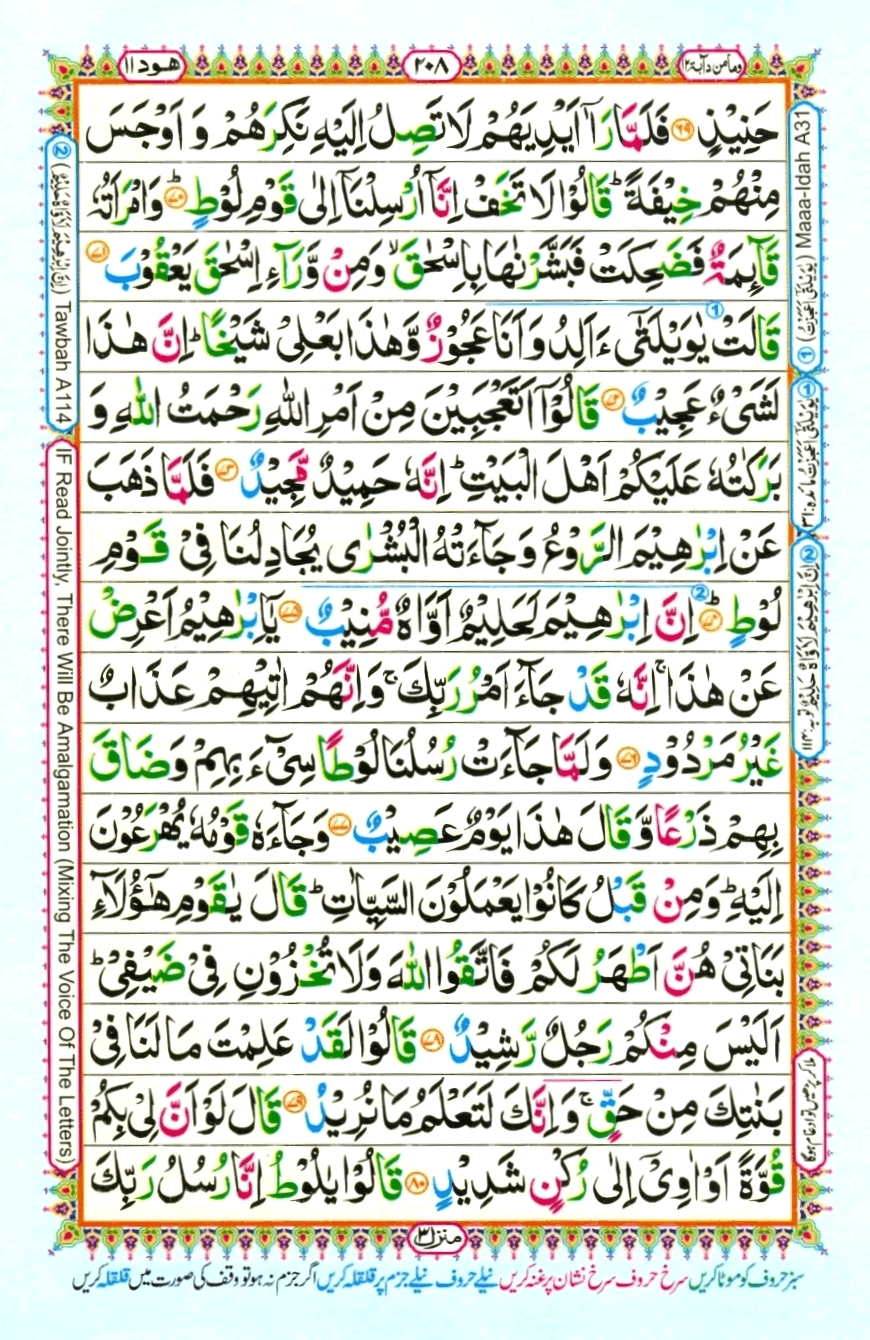 ومامن دآبة ١٢
٢٠٨
هود ١١
حَنِيْذٍ ﴿٦٩﴾ فَلَمَّا رَاٰۤ اَيْدِيَهُمْ لَا تَصِلُ اِلَيْهِ نَكِرَهُمْ وَ اَوْجَسَ
مِنْهُمْ خِيْفَةً ؕ قَالُوْا لَا تَخَفْ اِنَّاۤ اُرْسِلْنَاۤ اِلٰى قَوْمِ لُوْطٍ ؕ﴿٧٠﴾ وَامْرَاَتُهٗ
قَآئِمَةٌ فَضَحِكَتْ فَبَشَّرْنٰهَا بِاِسْحٰقَ ۙ وَمِنْ وَّرَآءِ اِسْحٰقَ يَعْقُوْبَ ﴿٧١﴾
قَالَتْ يٰوَيْلَتٰۤى ءَاَلِدُ وَ اَنَا عَجُوْزٌ وَّهٰذَا بَعْلِىْ شَيْخًا ؕ اِنَّ هٰذَا
لَشَىْءٌ عَجِيْبٌ ﴿٧٢﴾ قَالُوْۤا اَتَعْجَبِيْنَ مِنْ اَمْرِ اللّٰهِ رَحْمَتُ اللّٰهِ وَ
بَرَكٰتُهٗ عَلَيْكُمْ اَهْلَ الْبَيْتِ ؕ اِنَّهٗ حَمِيْدٌ مَّجِيْدٌ ﴿٧٣﴾ فَلَمَّا ذَهَبَ
عَنْ اِبْرٰهِيْمَ الرَّوْعُ وَجَآءَتْهُ الْبُشْرٰى يُجَادِلُنَا فِىْ قَوْمِ
لُوْطٍ ؕ﴿٧٤﴾ اِنَّ اِبْرٰهِيْمَ لَحَلِيْمٌ اَوَّاهٌ مُّنِيْبٌ ﴿٧٥﴾ يٰۤاِبْرٰهِيْمُ اَعْرِضْ
عَنْ هٰذَا ۚ اِنَّهٗ قَدْ جَآءَ اَمْرُ رَبِّكَ ۚ وَاِنَّهُمْ اٰتِيْهِمْ عَذَابٌ
غَيْرُ مَرْدُوْدٍ ﴿٧٦﴾ وَلَمَّا جَآءَتْ رُسُلُنَا لُوْطًا سِىْٓءَ بِهِمْ وَضَاقَ
بِهِمْ ذَرْعًا وَّقَالَ هٰذَا يَوْمٌ عَصِيْبٌ ﴿٧٧﴾ وَجَآءَهٗ قَوْمُهٗ يُهْرَعُوْنَ
اِلَيْهِ ؕ وَمِنْ قَبْلُ كَانُوْا يَعْمَلُوْنَ السَّيِّاٰتِ ؕ قَالَ يٰقَوْمِ هٰٓؤُلَآءِ
بَنَاتِىْ هُنَّ اَطْهَرُ لَكُمْ فَاتَّقُوا اللّٰهَ وَلَا تُخْزُوْنِ فِىْ ضَيْفِىْ ؕ
اَلَيْسَ مِنْكُمْ رَجُلٌ رَّشِيْدٌ ﴿٧٨﴾ قَالُوْا لَقَدْ عَلِمْتَ مَا لَنَا فِىْ
بَنٰتِكَ مِنْ حَقٍّ ۚ وَاِنَّكَ لَتَعْلَمُ مَا نُرِيْدُ ﴿٧٩﴾ قَالَ لَوْ اَنَّ لِىْ بِكُمْ
قُوَّةً اَوْ اٰوِىْۤ اِلٰى رُكْنٍ شَدِيْدٍ ﴿٨٠﴾ قَالُوْا يٰلُوْطُ اِنَّا رُسُلُ رَبِّكَ
① (يٰوَيْلَتٰٓى اَعَجَزْتُ) Maaa-Idah A31
① يٰوَيْلَتٰٓى اَعَجَزْتُ مائدہ:٣١
② اِنَّ اِبْرٰهِيْمَ لَاَوَّاهٌ حَلِيْمٌ توبہ:١١٤
ملا کر پڑھیں تو ادغام ہوگا
② (اِنَّ اِبْرٰهِيْمَ لَاَوَّاهٌ حَلِيْمٌ) Tawbah A114
IF Read Jointly, There Will Be Amalgamation (Mixing The Voice Of The Letters)
منزل ٣
سبز حروف کو موٹا کریں سرخ حروف سرخ نشان پر غنہ کریں نیلے حروف نیلے جزم پر قلقلہ کریں اگر جزم نہ ہو تو وقف کی صورت میں قلقلہ کریں